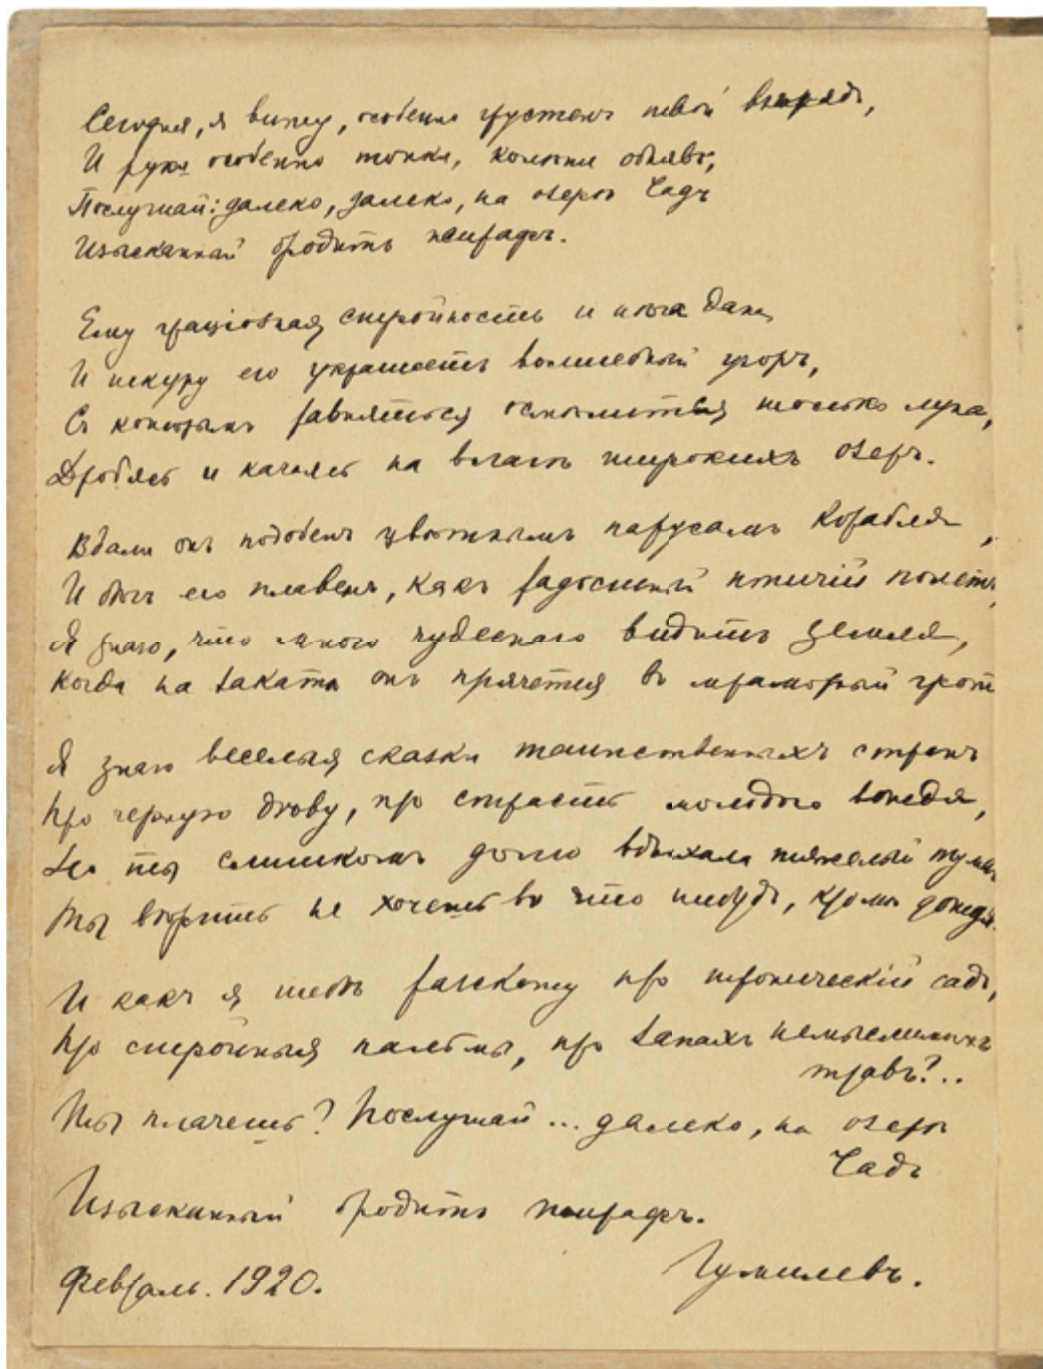 Сегодня, я вижу, особенно грустенъ твой взглядъ,
И руки особенно тонки, колѣни обнявъ;
Послушай: далеко, далеко, на озерѣ Чадъ
Изысканный бродитъ жирафъ.
Ему граціозная стройность и нѣга дана,
И шкуру его украшаетъ волшебный узоръ,
Съ которымъ равняться осмѣлится только луна,
Дробясь и качаясь на влагѣ широкихъ озеръ.
Вдали онъ подобенъ цвѣтнымъ парусамъ корабля,
И бѣгъ его плавенъ, какъ радостный птичій полетъ,
Я знаю, что много чудеснаго видитъ земля,
Когда на закатѣ онъ прячется въ мраморный гротъ
Я знаю веселыя сказки таинственныхъ странъ
Про черную дѣву, про страсть молодого вождя,
Но ты слишкомъ долго вдыхала тяжелый туманъ
Ты вѣрить не хочешь во что нибудь, кромѣ дождя.
И какъ я тебѣ разскажу про тропическій садъ,
Про стройныя пальмы, про запахъ немыслимыхъ
травъ?..
Ты плачешь? Послушай... далеко, на озерѣ
Чадъ
Изысканный бродитъ жирафъ.
Гумилевъ.
Февраль. 1920.